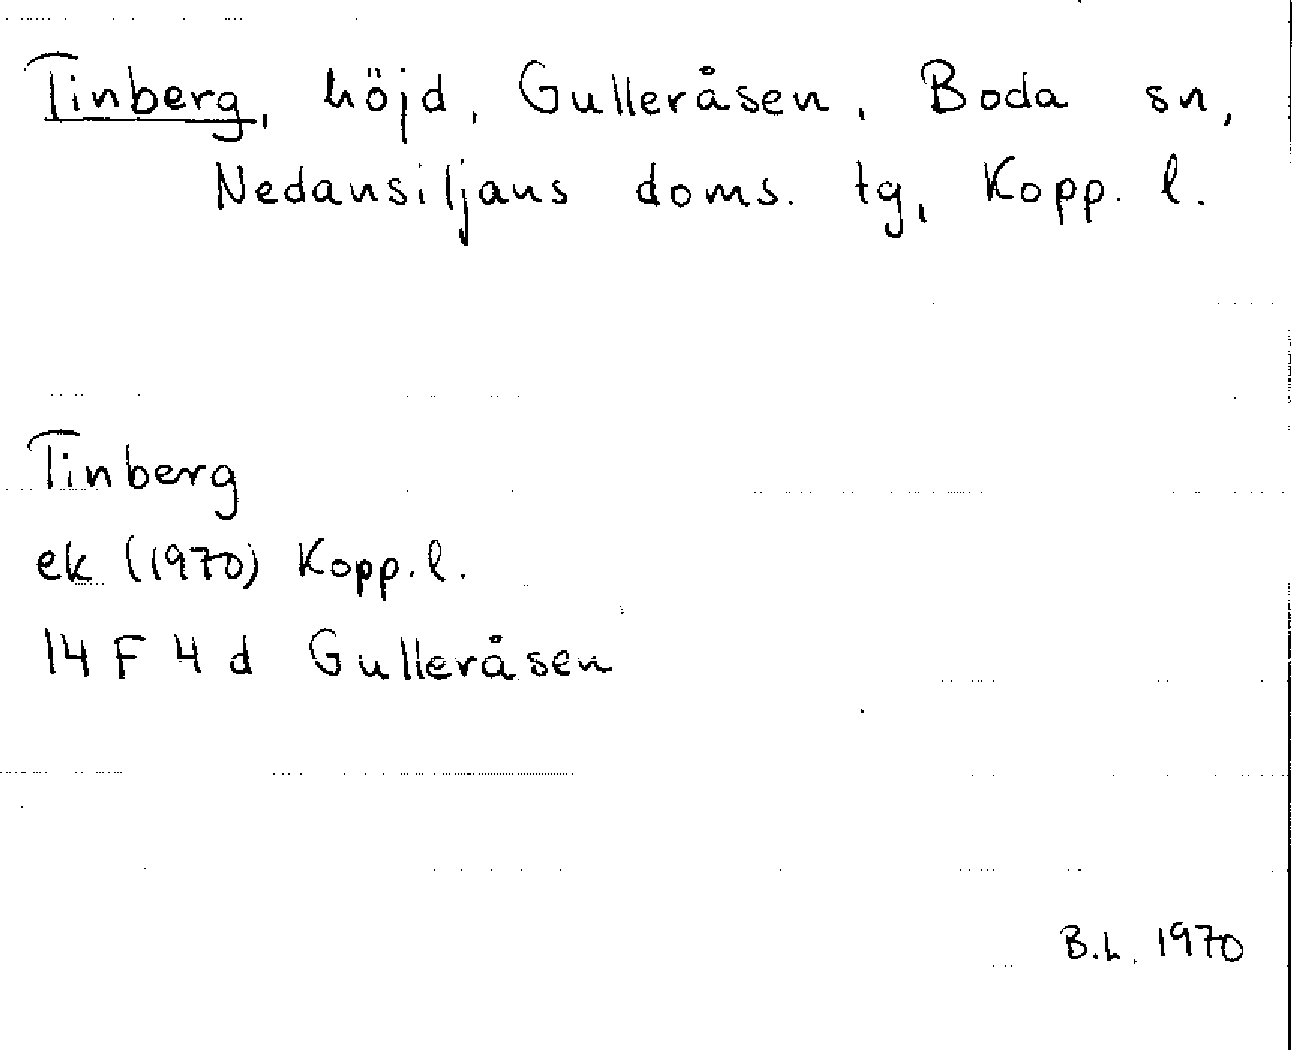 Tinberg, höjd, Gulleråsen, Boda sn,
Nedansiljans doms. tg, Kopp. l.
Tinberg
ek (1970) Kopp. l.
14 F 4 d Gulleråsen
B.L. 1970